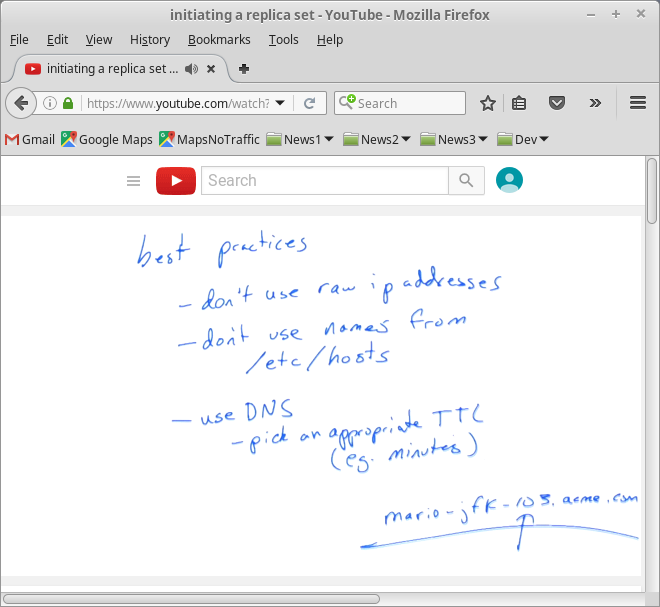 initiating a replica set - YouTube - Mozilla Firefox
File Edit View History Bookmarks Tools Help
initiating a replica set ...
https://www.youtube.com/watch?
Search
Gmail Google Maps MapsNoTraffic News1 News2 News3 Dev
Search
best practices
- don't use raw ip addresses
- don't use names from
/etc/hosts
- use DNS
- pick an appropriate TTL
(eg. minutes)
mario-jfk-103.acme.com